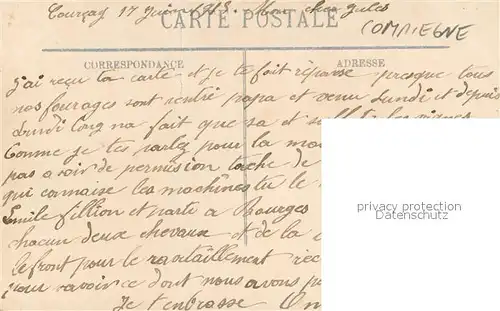 Tourçay 17 Juin 1915. Mon cher Jules
CARTE POSTALE
COMPIEGNE
CORRESPONDANCE
ADRESSE
J'ai reçu ta carte et je te fait réponse presque tous
nos fourages sont rentré papa et venu Lundi et depuis
Lundi on na fait que sa et les vignes
Comme je tes parlez pour la
pas avoir de permission tache de
qui connaise les machines tu le
Emile fillion et parti a Bourges
chacun deux chevaux et de la
le front pour le ravitaillement
pour savoir ce dont nous avons
Je t'enbrasse
privacy protection
Datenschutz